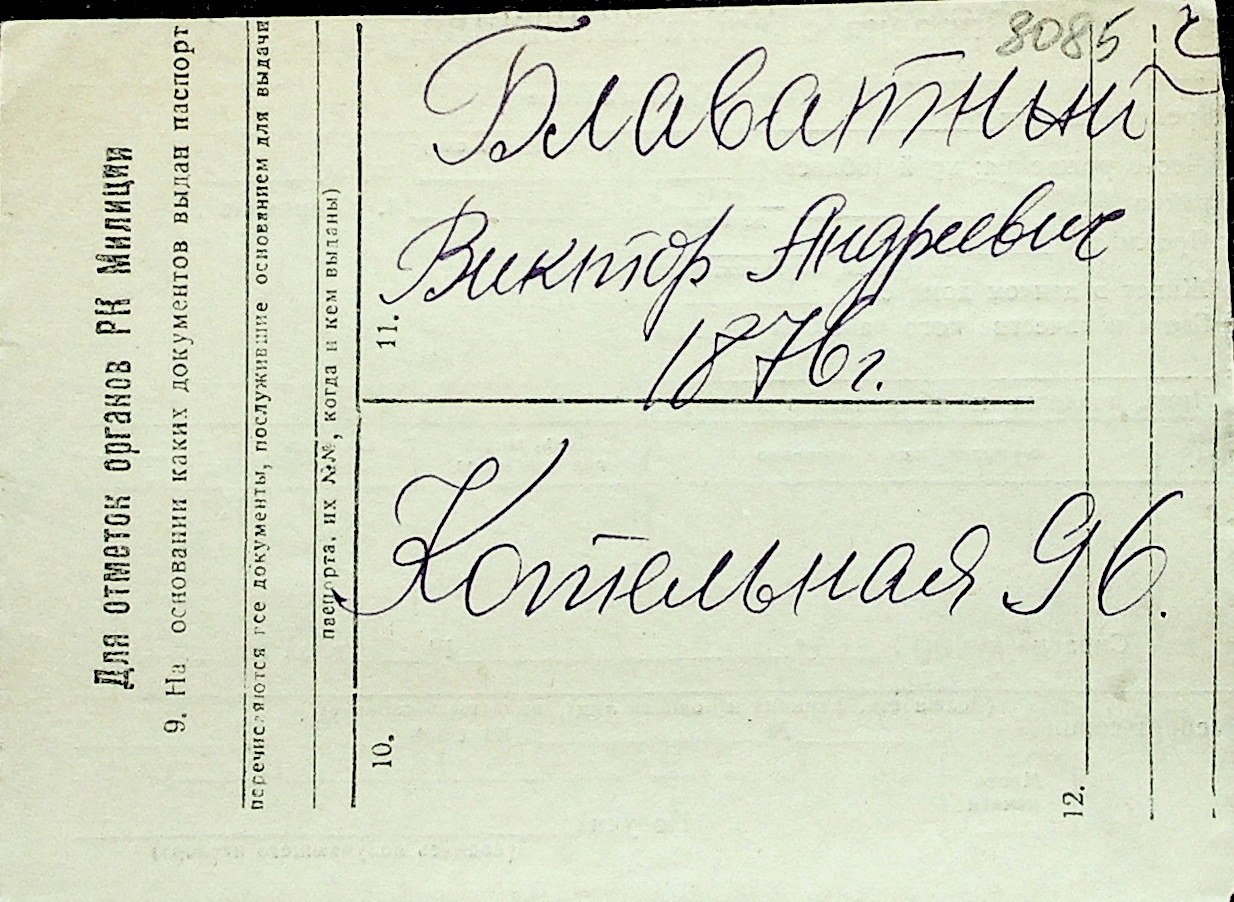 8085
Блаватный
Виктор Андреевич
1876 г.
Котельная 96.
Для отметок органов РК Милиции
9. На основании каких документов выдан паспорт
перечисляются все документы, послужившие основанием для выдачи
паспорта, их №№, когда и кем выданы)
10.
11.
12.